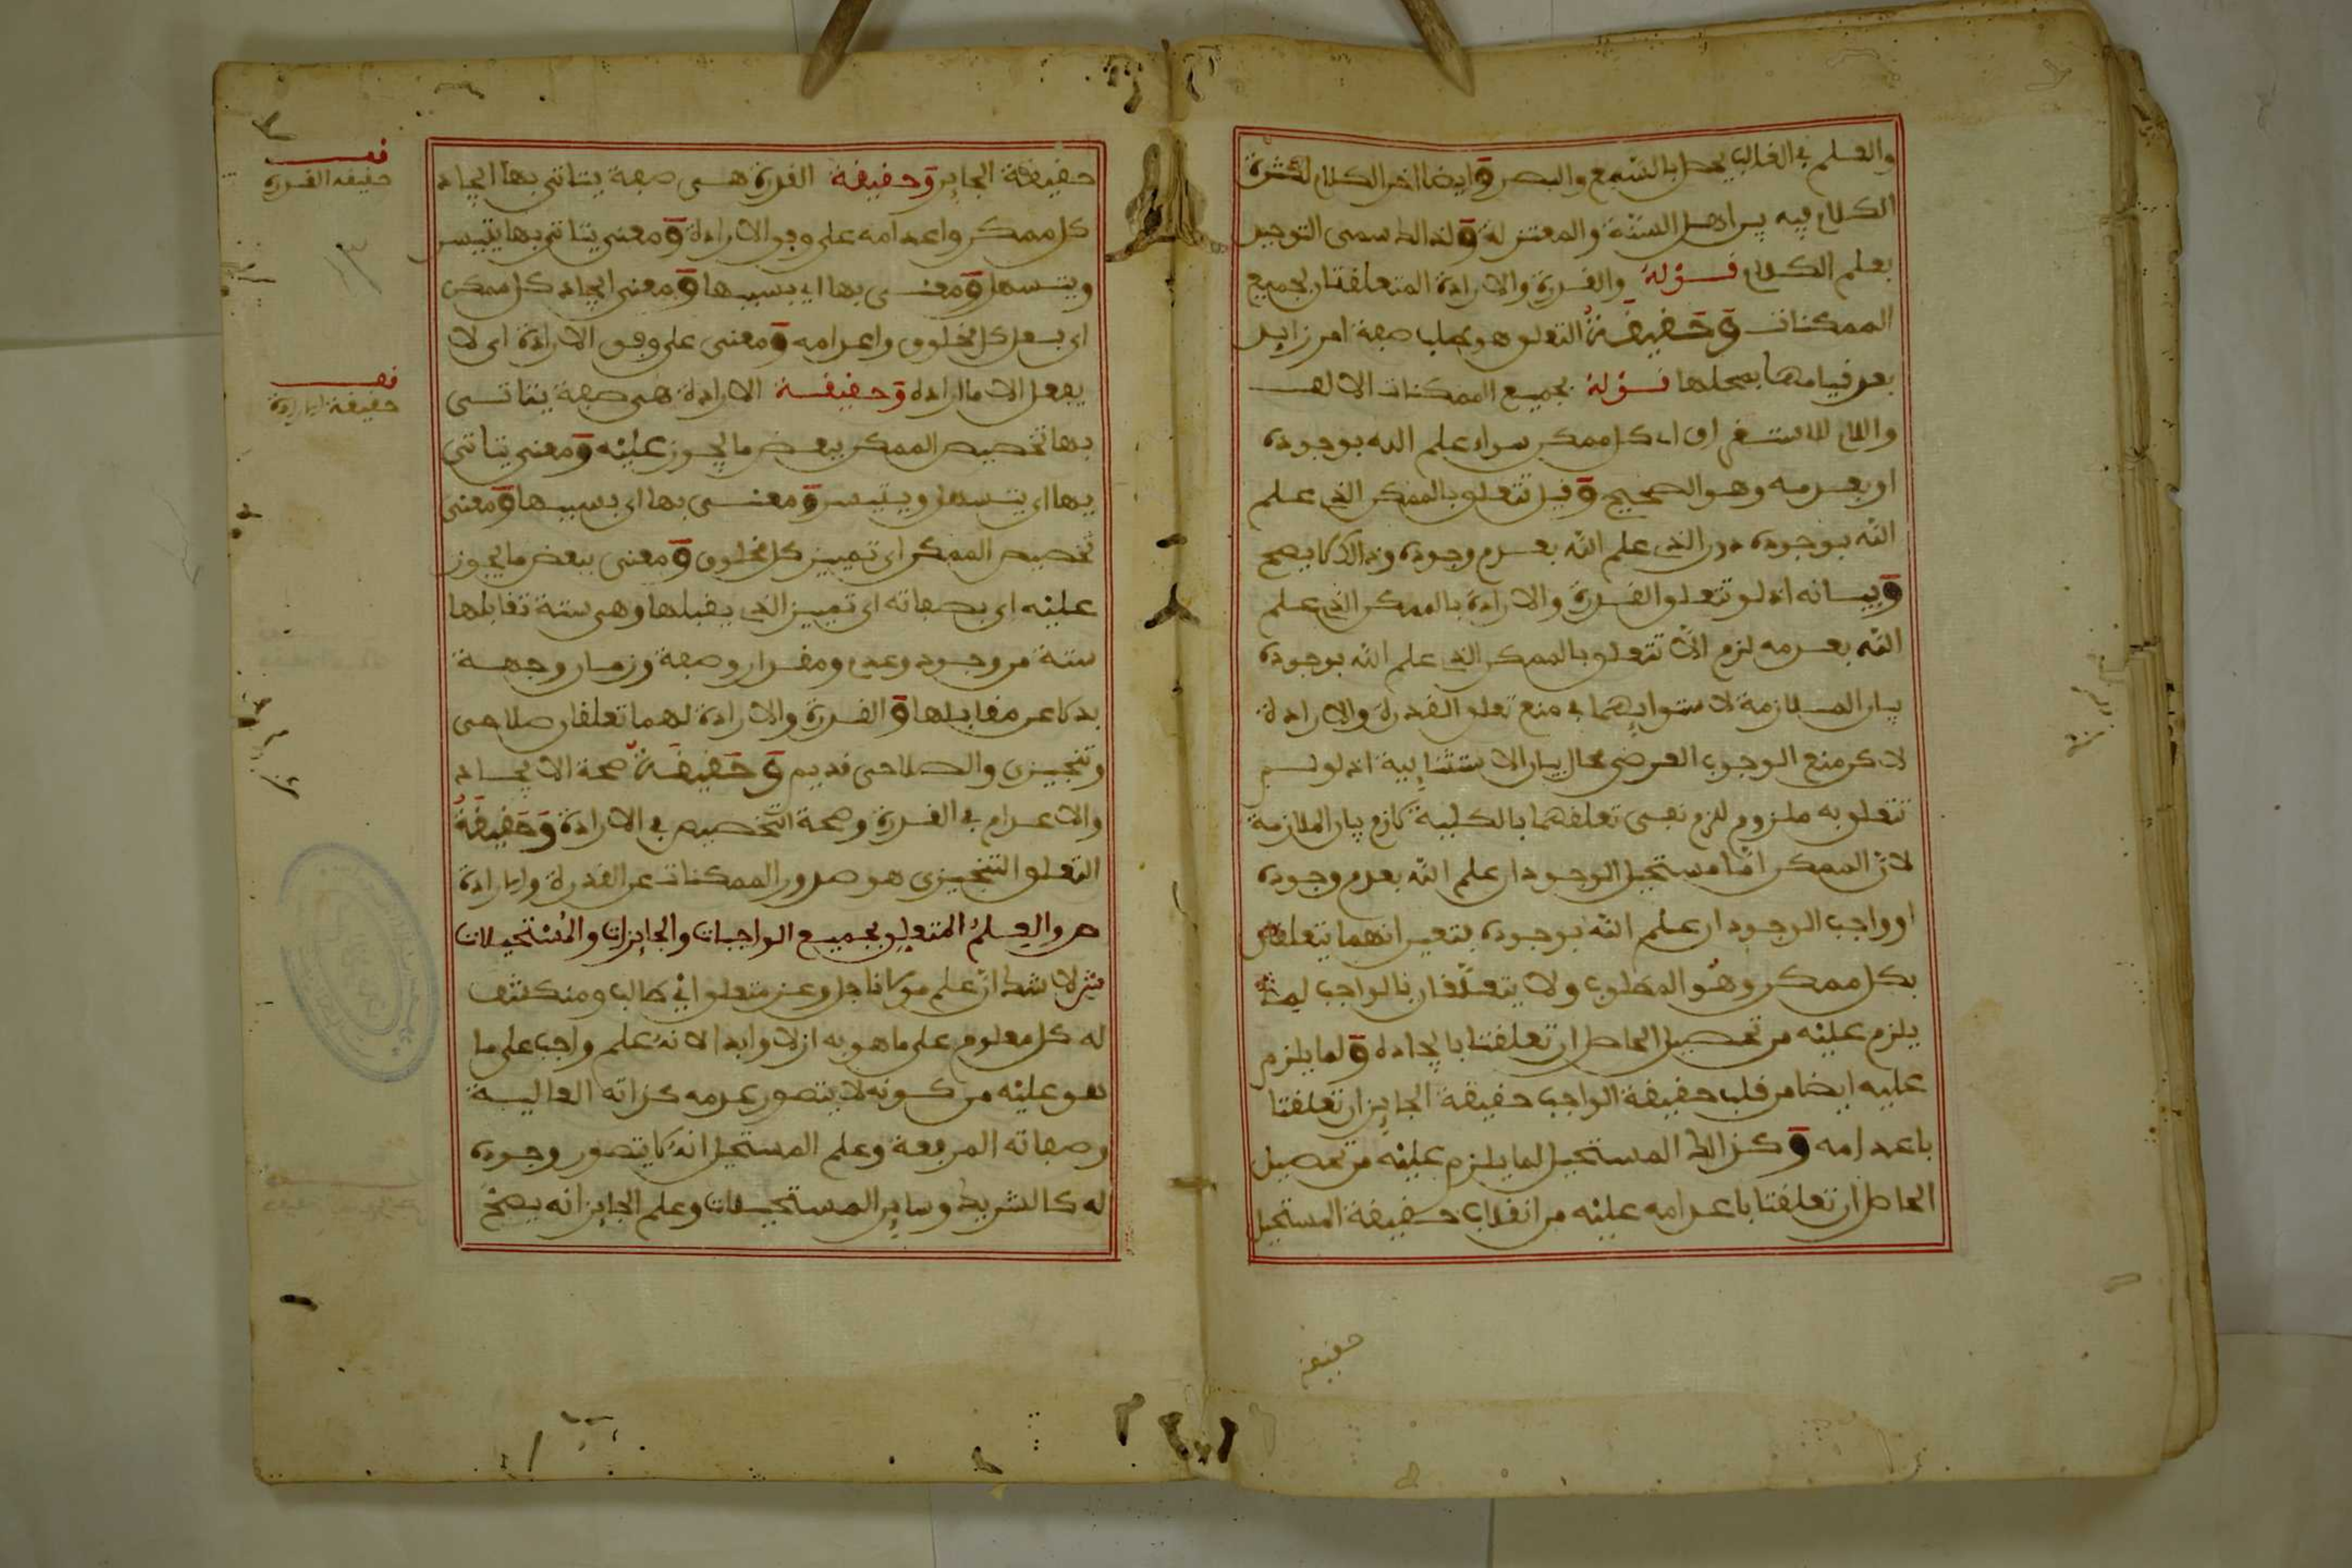 والعلم في الغالب يحصل بالسمع والبصر وايضا اخر الكلام لكثرة
الكلام فيه بين اهل السنة والمعتزلة ولذالك سمى التوحيد
بعلم الكلام قوله والقدرة والارادة المتعلقتان بجميع
الممكنات وحقيقة التعلق هو طلب صفة امر زايد
بعد قيامها بمحلها قوله بجميع الممكنات الالف
واللام للاستغراق اي كل ممكن سواء علم الله بوجوده
او بعدمه وهو الصحيح وقيل تتعلق بالممكن الذي علم
الله بوجوده دون الذي علم الله بعدم وجوده وذالك لا يصح
وبيانه اذ لو تعلق القدرة والارادة بالممكن الذي علم
الله بعدمه لزم الا تتعلق بالممكن الذي علم الله بوجوده
بيان الملازمة لاستوايهما في منع تعلق القدرة والارادة
لاكن منع الوجوب العرضي محال بيان الاستثنايية اذ لو لم
تتعلق به ملزوم لزم نفي تعلقهما بالكلية كازم بيان الملازمة
لان الممكن اما مستحيل الوجود ان علم الله بعدم وجوده
او واجب الوجود ان علم الله بوجوده بتعين انهما يتعلقان
بكل ممكن وهو المطلوب ولا يتعلقان بالواجب لما
يلزم عليه من تحصيل الحاصل ان تعلقتا بايجاده ولما يلزم
عليه ايضا من قلب حقيقة الواجب حقيقة الجايز ان تعلقتا
باعدامه وكذالك المستحيل لما يلزم عليه من تحصيل
الحاصل ان تعلقتا باعدامه عليه من انقلاب حقيقة المستحيل
حقيقة
حقيقة الجايز وحقيقة القدرة هي صفة يتاتى بها ايجاد
كل ممكن واعدامه على وفق الارادة ومعنى يتاتى بها يتيسر
ويتسهل ومعنى بها اي بسببها ومعنى ايجاد كل ممكن
اي بفعل كل مخلوق واعدامه ومعنى على وفق الارادة اي لا
يفعل الا ما اراده وحقيقة الارادة هي صفة يتاتى
بها تخصيص الممكن ببعض ما يجوز عليه ومعنى يتاتى
بها اي يتسهل ويتيسر ومعنى بها اي بسببها ومعنى
تخصيص الممكن اي تمييز كل مخلوق ومعنى ببعض ما يجوز
عليه اي بصفاته اي تمييز الذي يقبلها وهي ستة تقابلها
ستة من وجود وعدم ومقدار وصفة وزمان وجهة
بدلا عن مقابلها والقدرة والارادة لهما تعلقان صلاحى
وتنجيزى والصلاحى قديم وحقيقة صحة الايجاد
والاعدام في القدرة وصحة التخصيص في الارادة وحقيقة
التعلق التنجيزى هو صدور الممكنات عن القدرة والارادة
ص والعلم المتعلق بجميع الواجبات والجايزات والمستحيلات
ش لا شك ان علم مولانا جل وعز متعلق اي طالب ومنكشف
له كل معلوم على ما هو به ازلا وابدا لانه علم واجب على ما
هو عليه من كونه لا يتصور عدمه كذاته العالية
وصفاته المرفعة وعلم المستحيل انه لا يتصور وجوده
له كالشريك وساير المستحيلات وعلم الجايز انه يصح
قف
حقيقة القدرة
قف
حقيقة الارادة